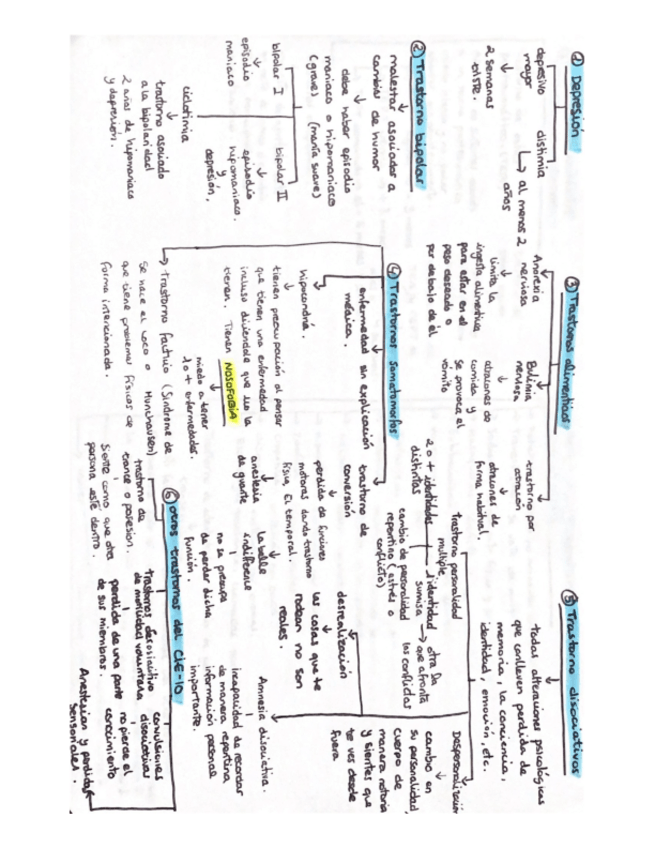 ① Depresión
depresivo
mayor
2 semanas
triste.
distimia
al menos 2
años
② Trastorno bipolar
malestar asociador a
cambios de humor
debe haber episodio
maniaco o hipomaniaco
(grave) (mania suave)
bipolar I
episodio
maniaco
bipolar II
episodio
hipomaniaco.
y
depresión.
ciclotimia
trastorno asociado
a la bipolaridad
2 años de hipomaniaco
y depresión.
③ Trastornos alimenticios
Anorexia
nerviosa
limita la
ingesta alimenticia
para estar en el
peso deseado o
por debajo de él
Bulimia
nerviosa
atracones de
comida y
se provoca el
vómito
trastorno por
atracón
atracones de
forma habitual.
④ Trastornos somatomorfos
enfermedad sin explicación
médica.
hipocondría.
tienen preocupación al pensar
que tienen una enfermedad
incluso diciendole que no la
tienen. Tienen NOSOFOBIA
miedo a tener
1 o + enfermedades.
trastorno facticio (Sindrome de
Se hace el loco o Munchausen)
que tiene problemas físicos de
forma intencionada.
trastorno de
conversión
perdida de funciones
motoras dando trastorno
física. El temporal.
anestesia
de guante
la belle
indifférence
no se preocupa
de perder dicha
función.
⑤ Trastorno disociativos
todas alteraciones psicológicas
que conlleven perdida de
memoria, la conciencia,
identidad, emoción, etc.
trastorno personalidad
multiple
2 o + identidades
distintas
1 identidad
sumisa
otra la
que afronta
los conflictos
cambio de personalidad
repentino (estrés o
conflicto)
Despersonalización
cambio en
su personalidad,
cuerpo de
manera notoria
y sientes que
te ves desde
fuera
desrealización
las cosas que te
rodean no son
reales.
Amnesia disociativa.
incapacidad de recordar
de manera repentina
información personal
importante.
⑥ otros trastornos del CIE-10
trastorno de
trance o posesión.
Siente como que otra
persona esté dentro.
trastornos disociativo
de motividad voluntaria
perdida de una parte
de sus miembros.
convulsiones
disociativas
no pierde el
conocimiento
Anestesias y perdidas
sensoriales.